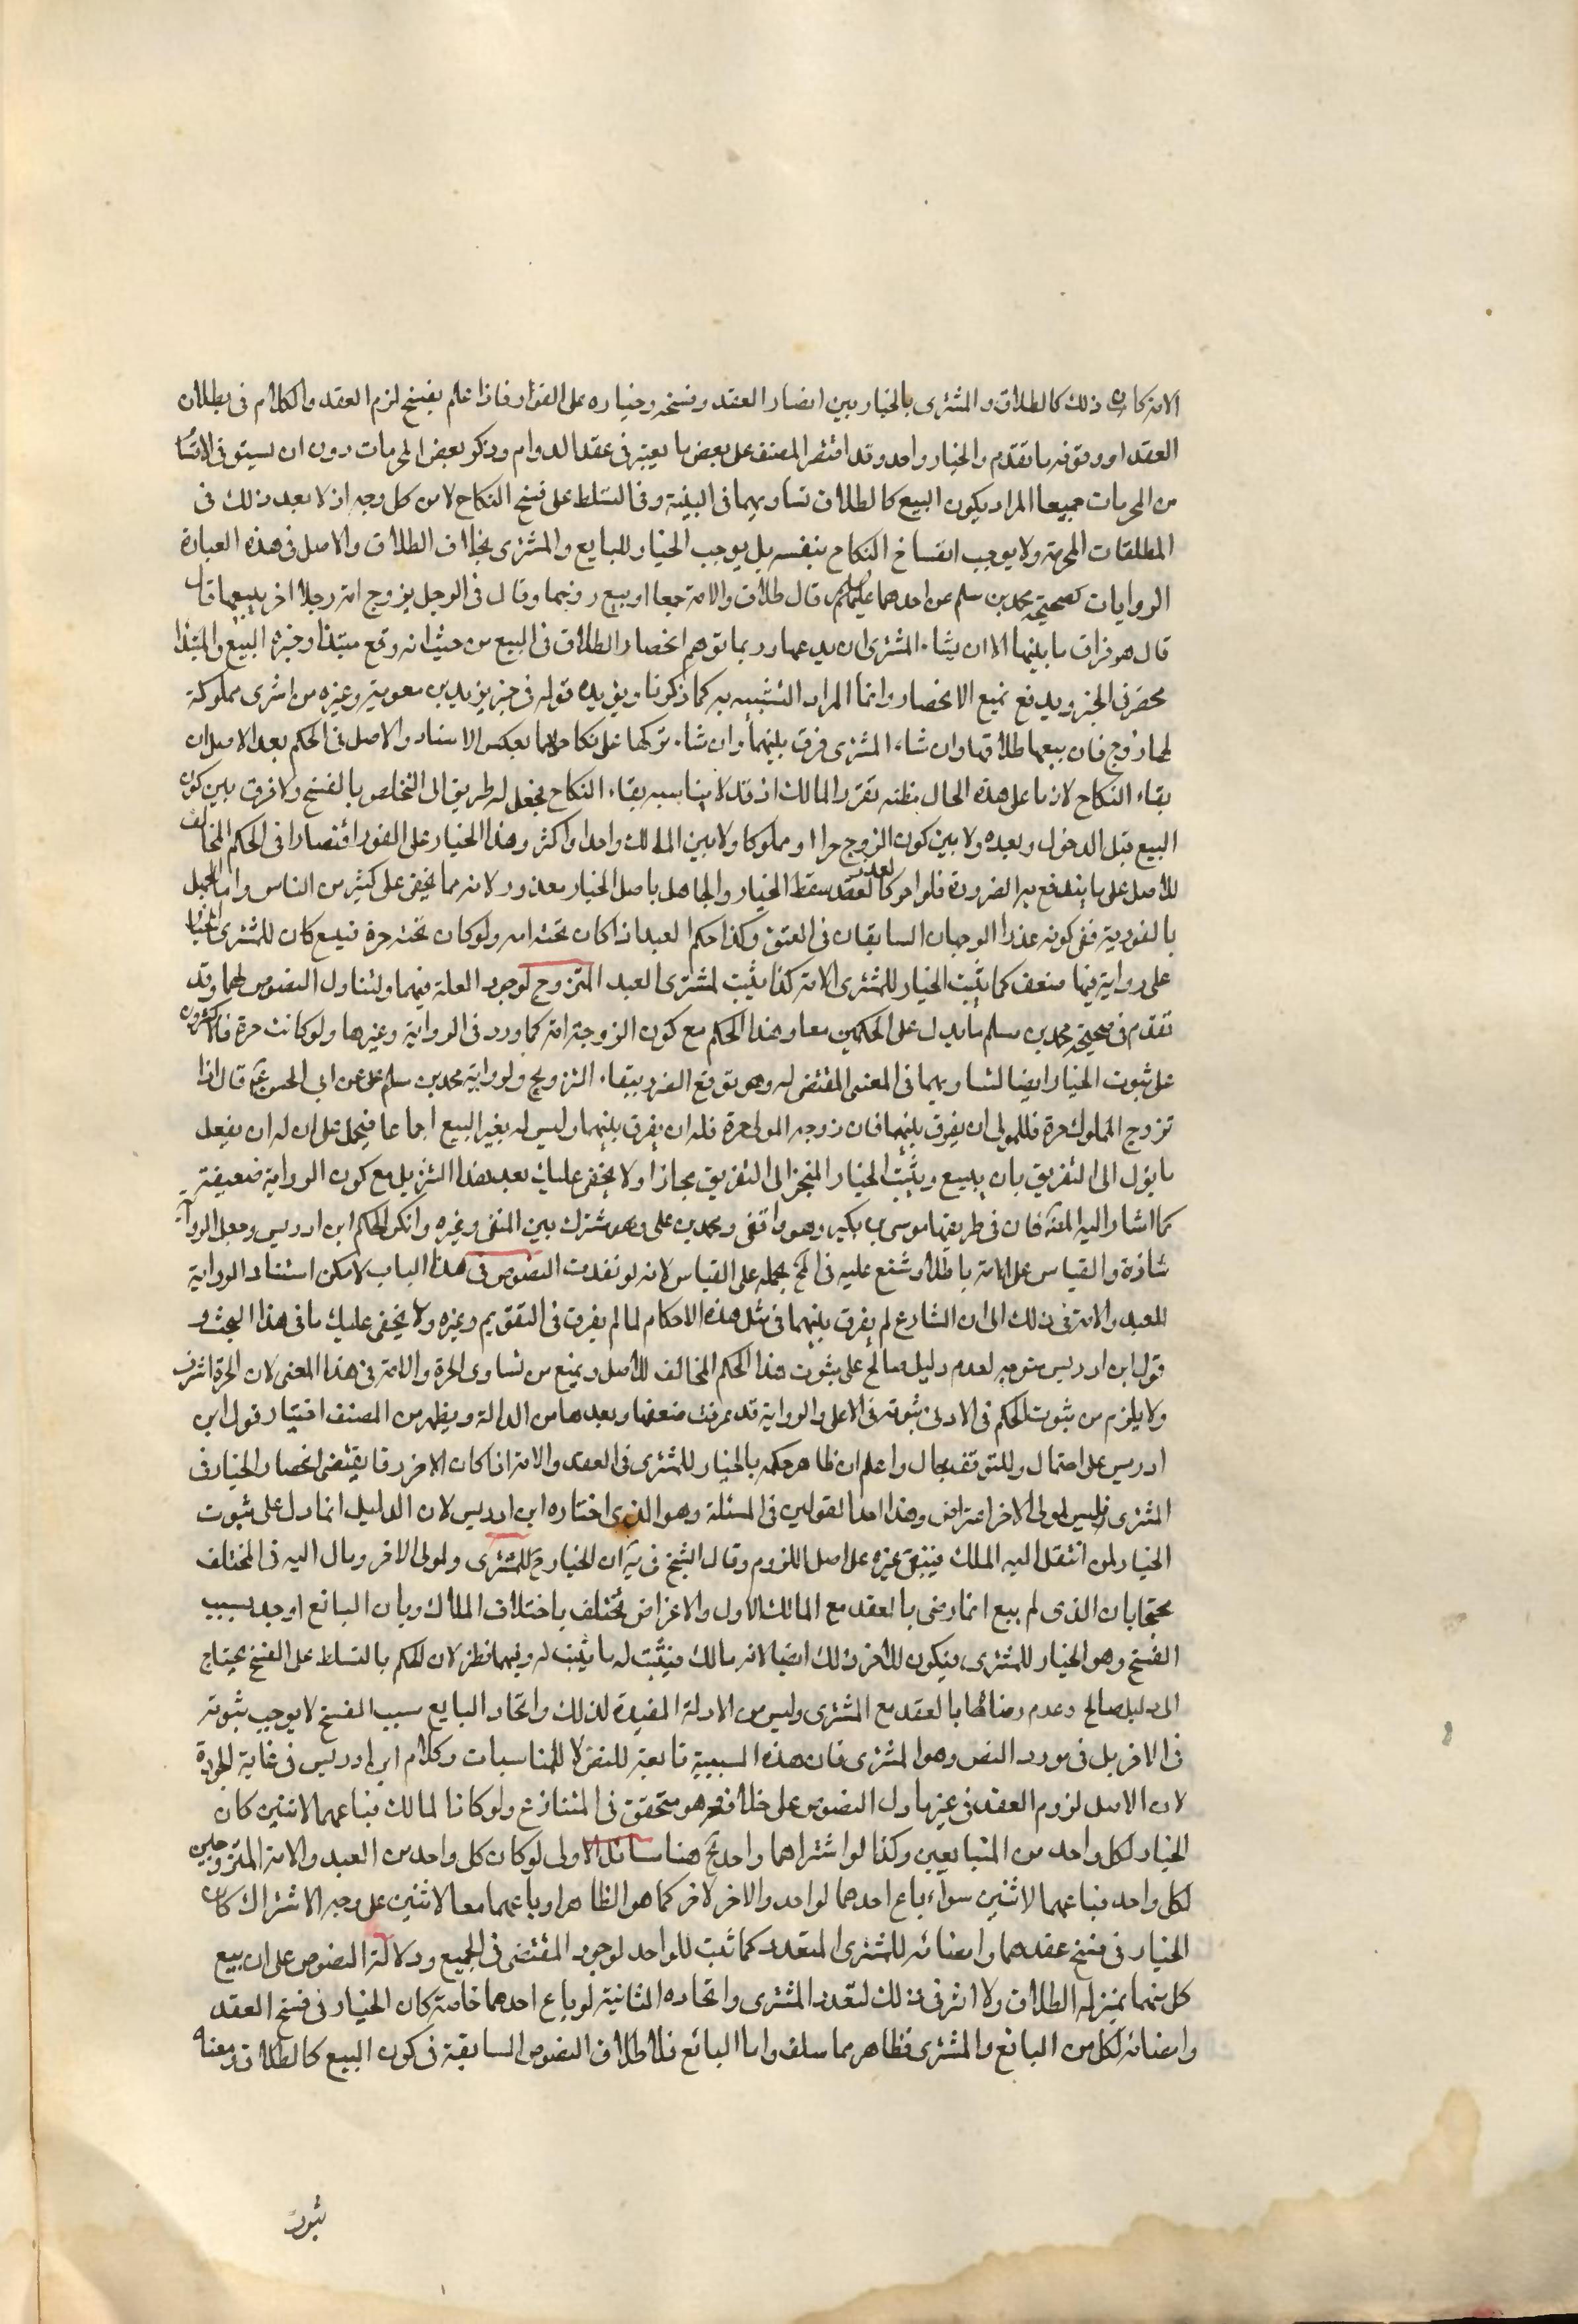 الامة كان ذلك كالطلاق والمشترى بالخيار بين امضاء العقد وفسخه وخياره على الفور فاذا علم يفسخ لزم العقد والكلام فى بطلان
العقد او وقوفه ما تقدم والخيار واحد وقد اقتصر المصنف على بعض ما يعتبر فى عقد الدوام وذكر بعض المحرمات دون ان يستوفى الاقسام
من المحرمات جميعا المراد بكون البيع كالطلاق تساويهما فى البينة وفى التسلط على فسخ النكاح لا من كل وجه اذ لا يعد ذلك فى
المطلقات المحرمة ولا يوجب انفساخ النكاح بنفسه بل يوجب الخيار للبايع والمشترى بخلاف الطلاق والاصل فى هذه العبارة
الروايات كصحيحة محمد بن مسلم عن احدهما عليهما السلام قال طلاق الامة بيعها او بيع زوجها وقال فى الرجل يزوج امته رجلا اخر يبيعها قال
قال هو فراق ما بينهما الا ان يشاء المشترى ان يدعهما وربما توهم انحصار الطلاق فى البيع من حيث انه وقع مبتدا وخبره البيع والمبتدا
محصر فى الخبر ويدفع بمنع الانحصار وانما المراد التشبيه به كما ذكرنا ويؤيده قوله فى خبر يزيد بن معوية وغيره من اشترى مملوكة
لها زوج فان بيعها طلاقها وان شاء المشترى فرق بينهما وان شاء تركها على نكاحهما بعكس الاسناد والاصل فى الحكم بعد الاصل ان
بقاء النكاح لازما على هذه الحال مظنه تضرر المالك اذ قد لا يناسبه بقاء النكاح فجعل له طريق الى التخلص بالفسخ ولا فرق بين كون
البيع قبل الدخول وبعده ولا بين كون الزوج حرا او مملوكا ولا بين المالك واحدا واكثر وهذا الخيار على الفور اقتصارا فى الحكم المخالف
للاصل على ما يندفع به الضرورة فلو اخر لا لعذر سقط الخيار والجاهل باصل الخيار معذور لانه مما يخفى على كثير من الناس واما الجهل
بالفورية ففى كونه عذرا الوجهان السابقان فى العتق وكذا حكم العبد اذا كان تحته امه ولو كان تحته حرة فبيع كان للمشترى الخيار
على رواية فيها ضعف كما يثبت الخيار للمشترى الامة كذا يثبت لمشترى العبد المتزوج لوجود العلة فيهما ولتناول النصوص لهما وقد
تقدم فى صحيحة محمد بن مسلم ما يدل على الحكمين معا وهذا الحكم مع كون الزوجة امة كما ورد فى الرواية وغيرها ولو كانت حرة فالاكثرون
على ثبوت الخيار ايضا لتساويهما فى المعنى المقتضى له وهو توقع الضرر ببقاء التزويج ولرواية محمد بن مسلم على عن ابى الحسن ع قال اذا
تزوج المملوك حرة فللمولى ان يفرق بينهما فان زوجه المولى حرة فله ان يفرق بينهما وليس له بغير البيع اجماعا فيحمل على ان له ان يفعل
ما يؤل الى التفريق بان يبيع ويثبت الخيار المنجز الى التفريق مجازا ولا يخفى عليك بعد هذا التنزيل مع كون الرواية ضعيفة
كما اشار اليه المصنف فان فى طريقها موسى بن بكير وهو واقفى ومحمد بن على وهو مشترك بين الثقة وغيره وانكر الحكم ابن ادريس وجعل الرواية
شاذة والقياس على الامة باطلا وشنع عليه فى المخ بحمله على القياس لانه لو نفدت النصوص فى هذا الباب لامكن استناد الرواية
للعبد والامة فى ذلك الى ان الشارع لم يفرق بينهما فى مثل هذه الاحكام لما لم يفرق فى التقويم وغيره ولا يخفى عليك ما فى هذا البحث و
قول ابن ادريس متوجه لعدم دليل صالح على ثبوت هذا الحكم المخالف للاصل ويمنع من تساوى الحرة والامة فى هذا المعنى لان الحرة اشرف
ولا يلزم من ثبوت الحكم فى الادنى ثبوته فى الاعلى والرواية قد عرفت ضعفها وبعدها من الدالة ويظهر من المصنف اختيار قول ابن
ادريس على احتمال وللتوقف مجال واعلم ان ظاهر حكمه بالخيار للمشترى فى العبد والامة اذا كان الاخر رقا يقتضى انحصار الخيار فى
المشترى فليس لمولى الاخر اعتراض وهذا احد القولين فى المسئلة وهو الذى اختاره ابن ادريس لان الدليل انما دل على ثبوت
الخيار لمن انتقل اليه الملك فيبقى غيره على اصل اللزوم وقال الشيخ فى ية ان الخيار ح للمشترى ولمولى الاخر ومال اليه فى المختلف
محتجا بان الذى لم يبع انما رضى بالعقد مع المالك الاول والاغراض تختلف باختلاف الملاك وبان البائع اوجد سبب
الفسخ وهو الخيار للمشترى فيكون للاخر ذلك ايضا لانه مالك فيثبت له ما يثبت له وفيهما نظر لان الحكم بالتسلط على الفسخ يحتاج
الى دليل صالح وعدم رضائهما بالعقد مع المشترى وليس من الادلة المفيدة لذلك واتحاد البايع سبب المفسخ لا يوجب ثبوته
فى الاخر بل فى مورد النص وهو المشترى فان هذه السببية تابعة للنص لا للمناسبات وكلام ابن ادريس فى غاية الجودة
لان الاصل لزوم العقد فى غير ما دل النصوص على خلافه وهو متحقق فى المتنازع ولو كانا لمالك فباعهما لاثنين كان
الخيار لكل واحد من المتبايعين وكذا لو اشتراهما واحد ح هنا مسائل الاولى لو كان كل واحد من العبد والامة المتزوجين
لكل واحد فباعهما لاثنين سواء باع احدهما لواحد والاخر لاخر كما هو الظاهر او باعهما معا لاثنين على وجه الاشتراك كان
الخيار فى فسخ عقدهما وامضائه للمشترى المتعدد كما ثبت للواحد لوجود المقتضى فى الجميع ودلالة النصوص على ان بيع
كل منهما بمنزلة الطلاق ولا اثر فى ذلك لتعدد المشترى واتحاده الثانية لو باع احدهما خاصة كان الخيار فى فسخ العقد
وامضائه لكل من البائع والمشترى فظاهر مما سلف واما البائع فلاطلاق النصوص السابقة فى كون البيع كالطلاق ومعناه
ثبوت